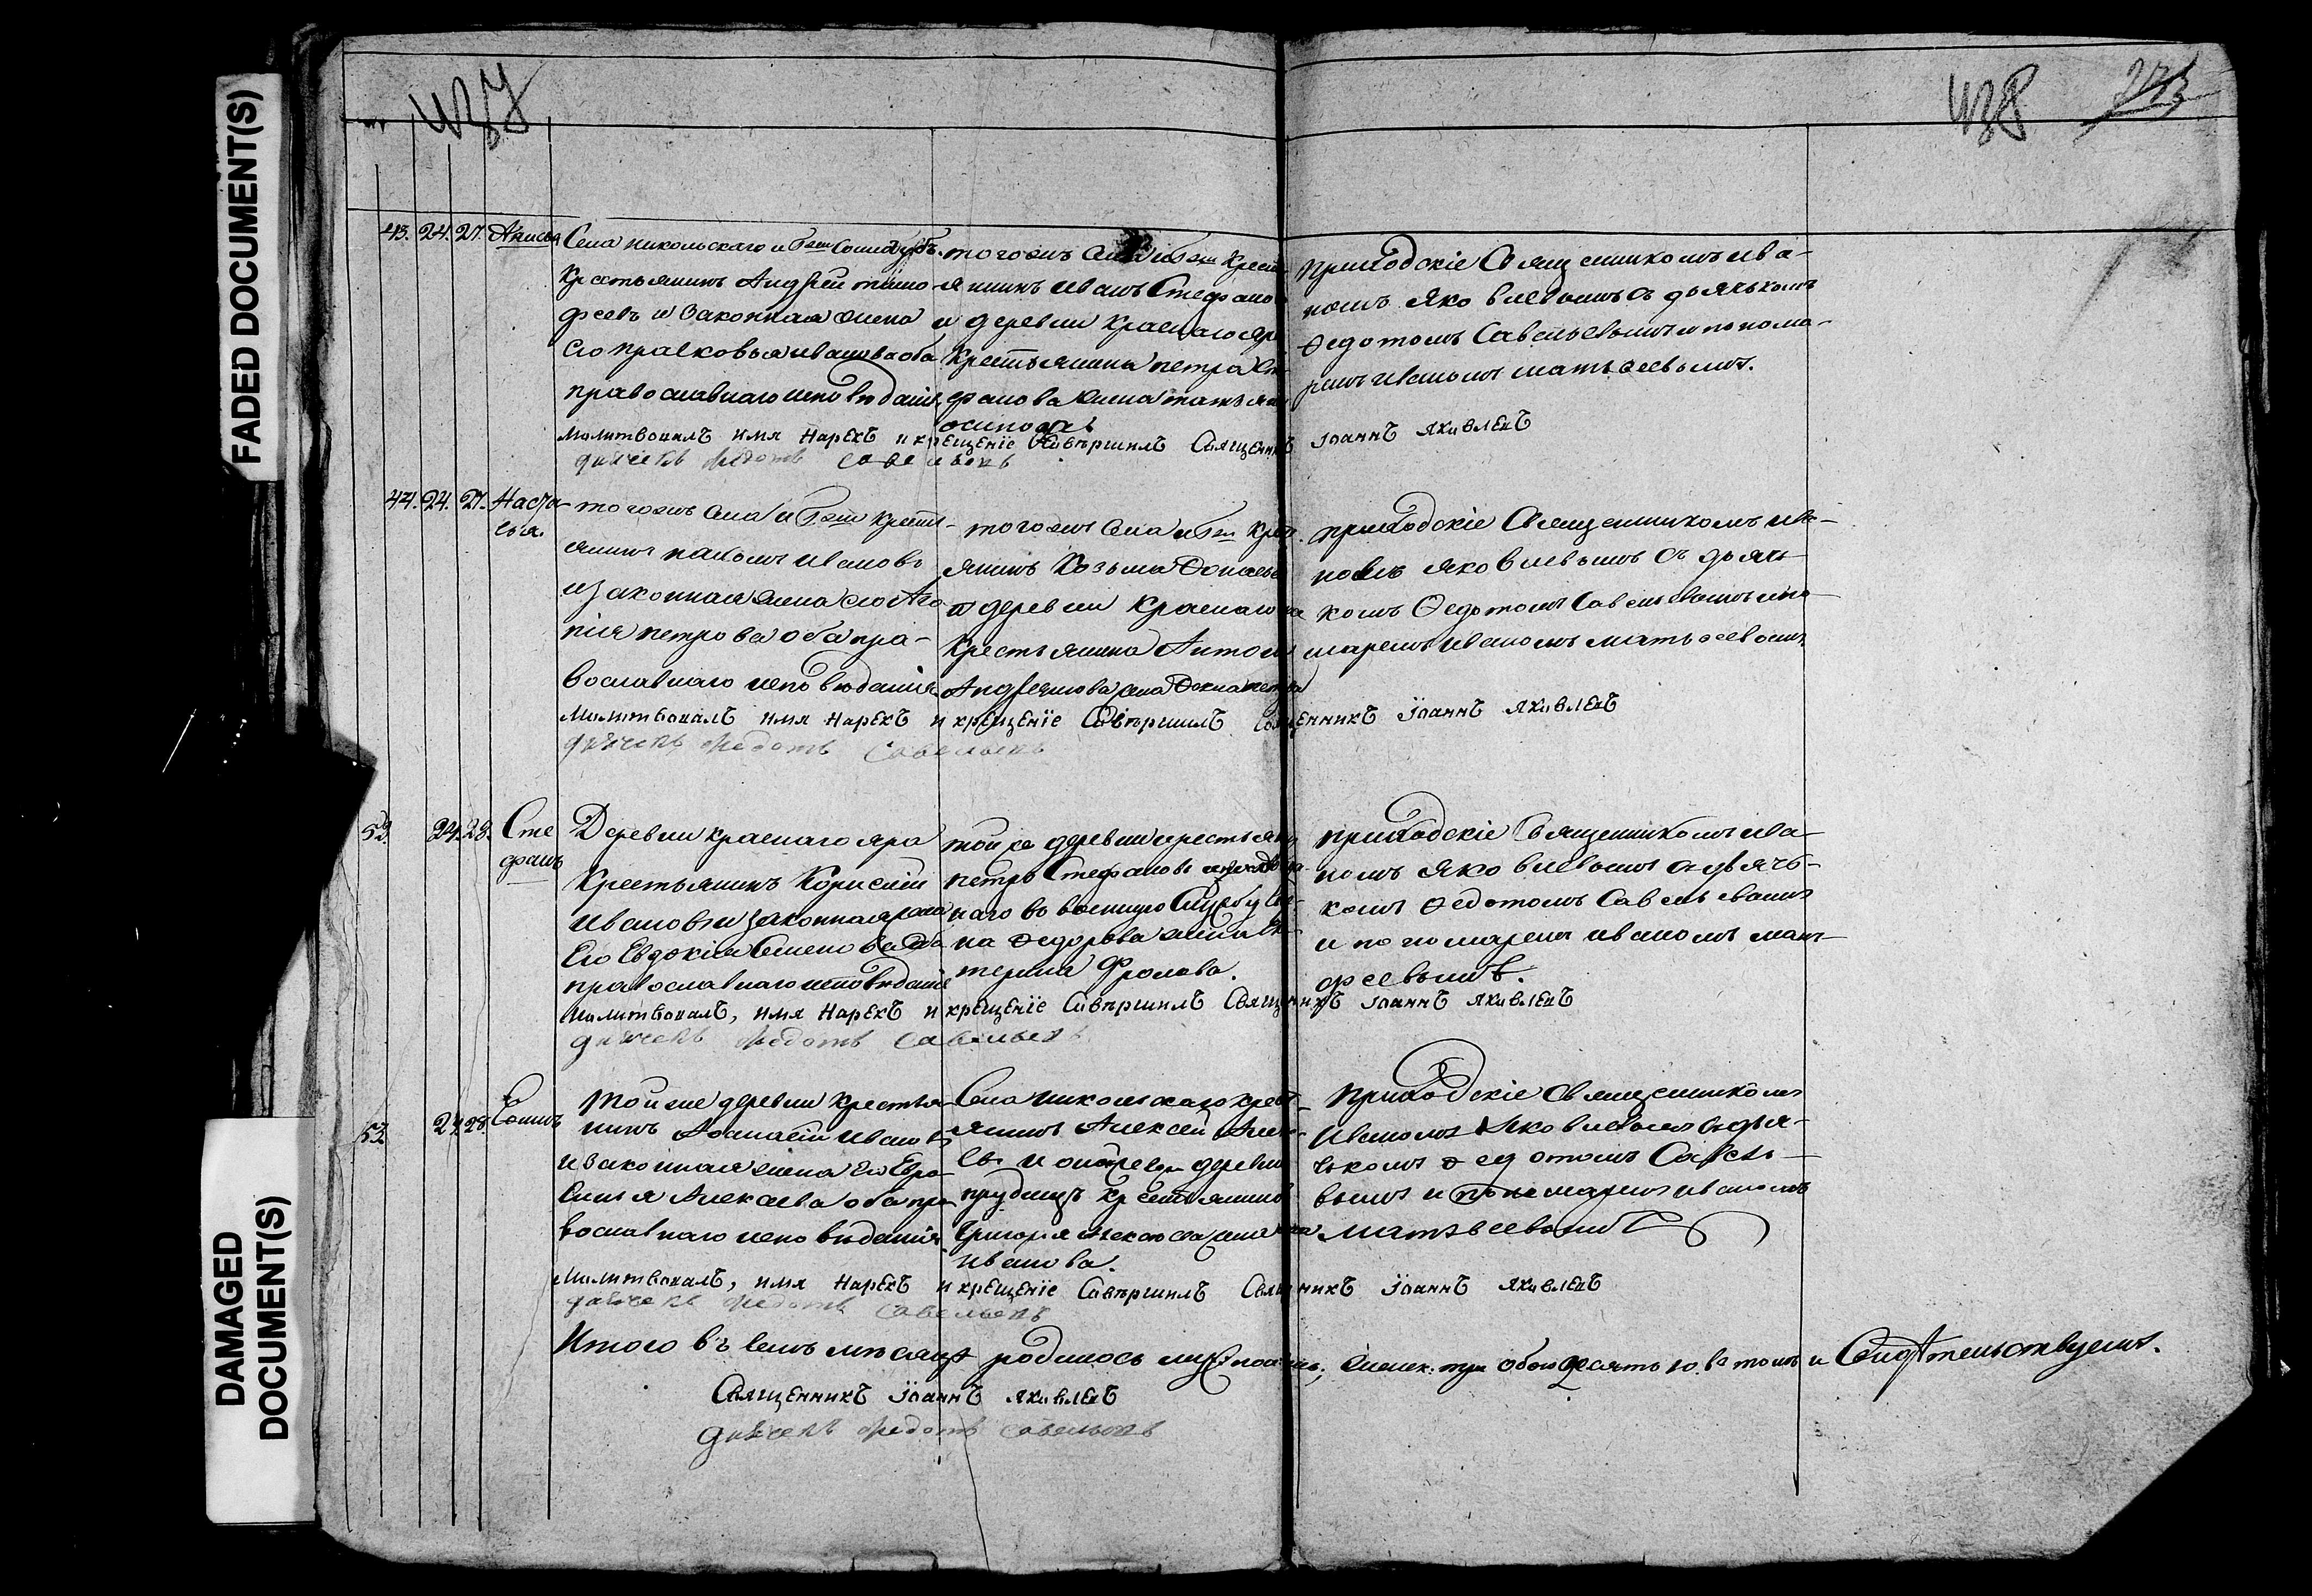 FADED DOCUMENT(S)
DAMAGED
DOCUMENT(S)
437
438
273
43. 24. 27.
Села никольскаго и
крестьянинъ Андрей тимо
феевъ и законная жена
его прасковья иванова оба
православнаго исповѣданія
тогожъ села крест
янинъ иванъ Стефанов
и деревни краснаго яра
крестьянина петра Сте
фанова жена татьяна
осипова
приходскіе Священникомъ ива-
номъ Яковлевымъ съ дьячькомъ
Ѳедотомъ Савельевымъ и понома-
ремъ иваномъ матвѣевымъ.
Молитвовалъ имя нарекъ и крещеніе Совершилъ Священникъ Іоаннъ Яковлевъ
дьячекъ Ѳедотъ савельевъ
44. 24. 27. Наста-
сья.
тогожъ села и кресть-
янинъ пахомъ ивановъ
и законная жена его Ага
пія петрова оба пра-
вославнаго исповѣданія
тогожъ села крест
янинъ Козьма
деревни краснаго яра
крестьянина Антона
Андреянова жена Ѳекла петрова
приходскіе Священникомъ ива-
номъ яковлевымъ съ дьячь-
комъ Ѳедотомъ Савельевымъ и поно-
маремъ иваномъ матвѣевымъ
Молитвовалъ имя нарекъ и крещеніе Совершилъ Священникъ Іоаннъ Яковлевъ
дьячекъ Ѳедотъ Савельевъ
53. 24. 28. Сте
фанъ
Деревни краснаго яра
крестьянинъ Корнелій
ивановъ и законная жена
Его Евдокія Семенова оба
православнаго исповѣданія
той же деревни крестьянинъ
петръ Стефановъ
наго въ военную Службу
на Ѳедорова жена Ека-
терина Фролова.
приходскіе Священникомъ ива-
номъ Яковлевымъ съ дьячь-
комъ Ѳедотомъ Савельевымъ
и пономаремъ иваномъ мат-
феевымъ.
Молитвовалъ, имя нарекъ и крещеніе Совершилъ Священникъ Іоаннъ Яковлевъ
дьячекъ Ѳедотъ савельевъ
53 24 28.
той же деревни крестья-
нинъ ивановъ
и законная жена его Евро
синья Алексѣева оба пра-
вославнаго исповѣданія
Села никольскаго крест-
янинъ Алексей
деревни
крестьянина
Григорья Алексѣева жена
иванова.
приходскіе Священникомъ
иваномъ Яковлевымъ съ дья-
чькомъ Ѳедотомъ Савель-
вымъ и пономаремъ иваномъ
матвѣевымъ
Молитвовалъ, имя нарекъ и крещеніе Совершилъ Священникъ Іоаннъ Яковлевъ
дьячекъ Ѳедотъ савельевъ
Итого въ семъ мѣсяцѣ родилось обоих десять 10. въ томъ и Свидѣтельствуемъ.
Священникъ Іоаннъ Яковлевъ
дьячекъ Ѳедотъ савельевъ